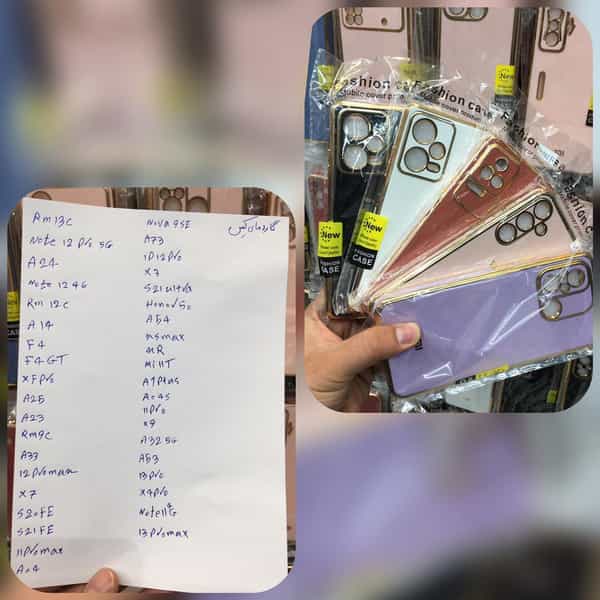 گارد مای کیس
Rm13C
Note 12 Pro 5G
A24
Note 12 4G
Rm 12C
A14
F4
F4 GT
XF Pro
A25
A23
Rm9C
A33
12 Pro max
X7
S20FE
S21FE
11 Pro max
A04
Nova 9SE
A73
IP12 Pro
X7
S21 ultra
Honor 50
A54
xsmax
XR
Mi 11T
A7 Plus
A04S
11 Pro
X9
A32 5G
A53
13 Pro
X4 Pro
13 Pro max
Fashion case
Mobile cover
Fashion case
Fashion case
New
New
FASHION CASE
New
FASHION CASE
New